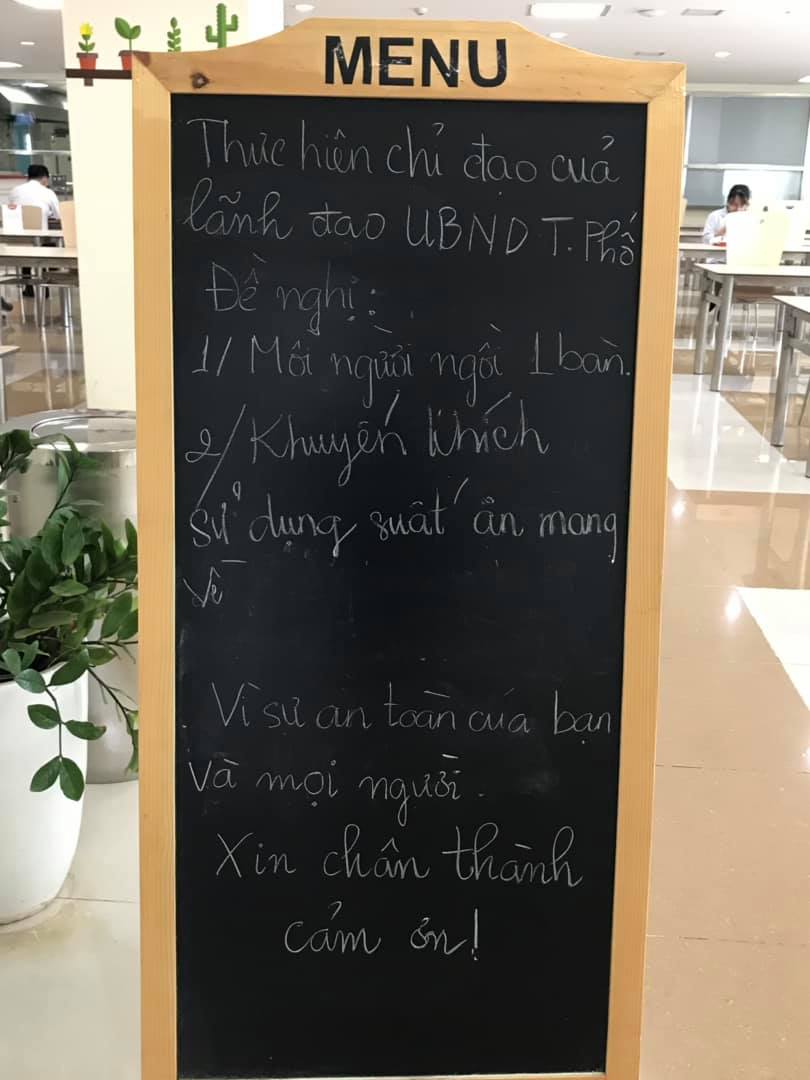 MENU
Thực hiện chỉ đạo của
lãnh đạo UBND T.Phố
Đề nghị:
1/ Mỗi người ngồi 1 bàn.
2/ Khuyến khích
sử dụng suất ăn mang
về
Vì sự an toàn của bạn
và mọi người.
Xin chân thành
cảm ơn!